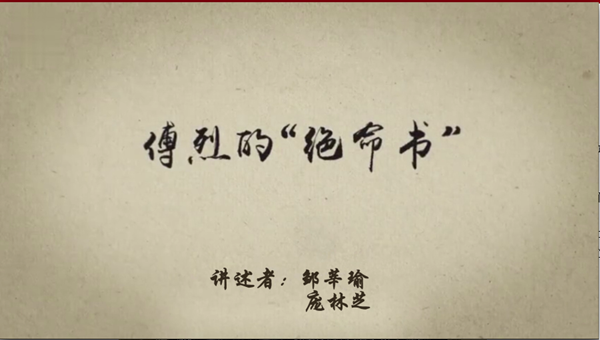 傅烈的“绝命书”
讲述者：邹莘瑜
庞林芝